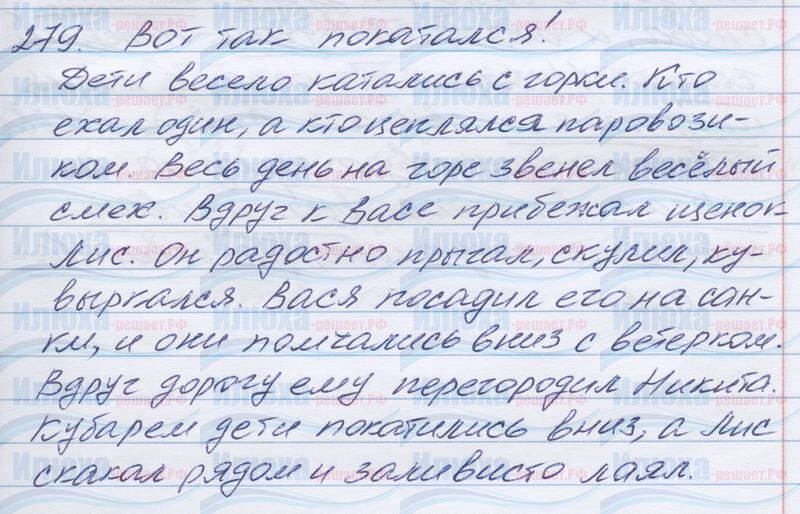 279. Вот так покатался!
Дети весело катались с горки. Кто
ехал один, а кто цеплялся паровози-
ком. Весь день на горе звенел весёлый
смех. Вдруг к Васе прибежал щенок
Лис. Он радостно прыгал, скулил, ку-
выркался. Вася посадил его на сан-
ки, и они помчались вниз с ветерком.
Вдруг дорогу ему перегородил Никита.
Кубарем дети покатились вниз, а Лис
скакал рядом и заливисто лаял.